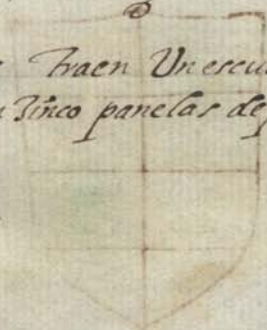 Traen Un escu
Zinco panelas de